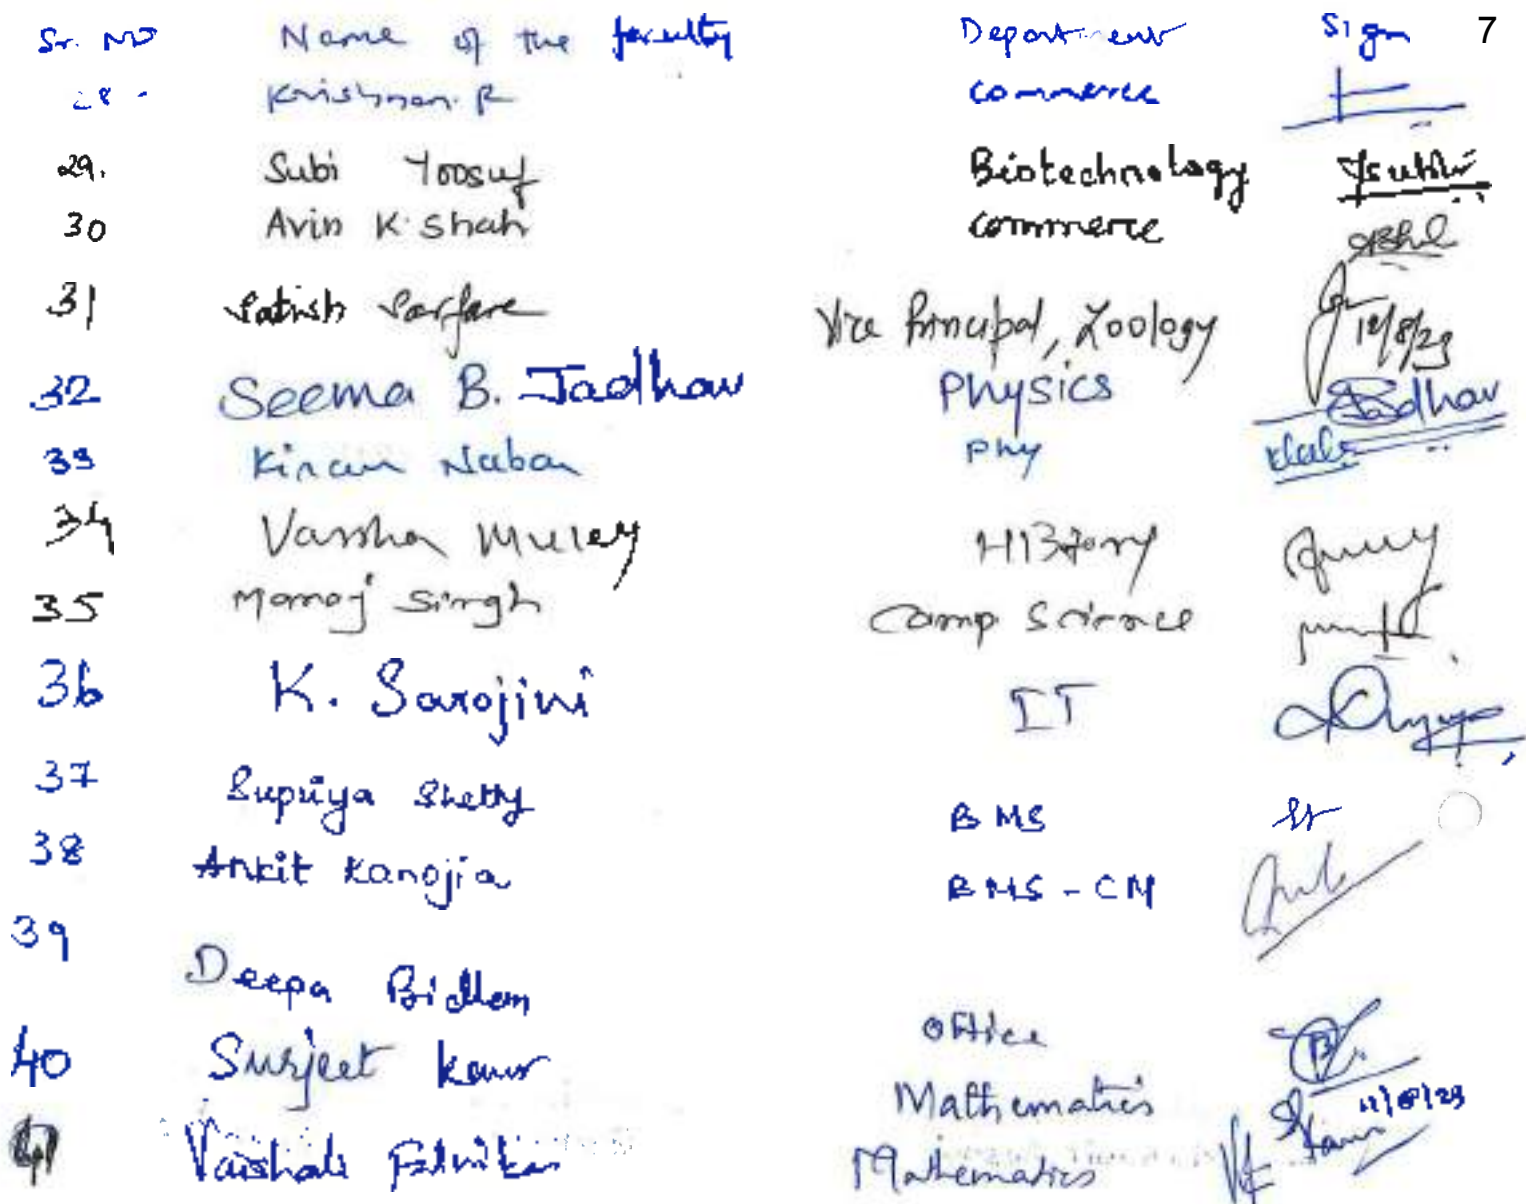 Sr. No Name of the faculty Department Sign 7
28 - Krishnan. R commerce
29. Subi Yoosuf Biotechnology
30 Avin K. Shah commerce
31 Satish Sarfare Vice Principal, Zoology 12/8/23
32 Seema B. Jadhav Physics Jadhav
33 Kiran Phy
34 Varsha Muley History
35 Manoj Singh Comp Science
36 K. Sarojini IT
37 Supriya Shetty BMS
38 Ankit Kanojia BMS - CM
39 Deepa Office
40 Surjeet Kaur Mathematics 11/8/23
41 Vaishali Mathematics